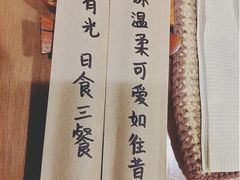 有光 日食三餐
温柔可爱如往昔